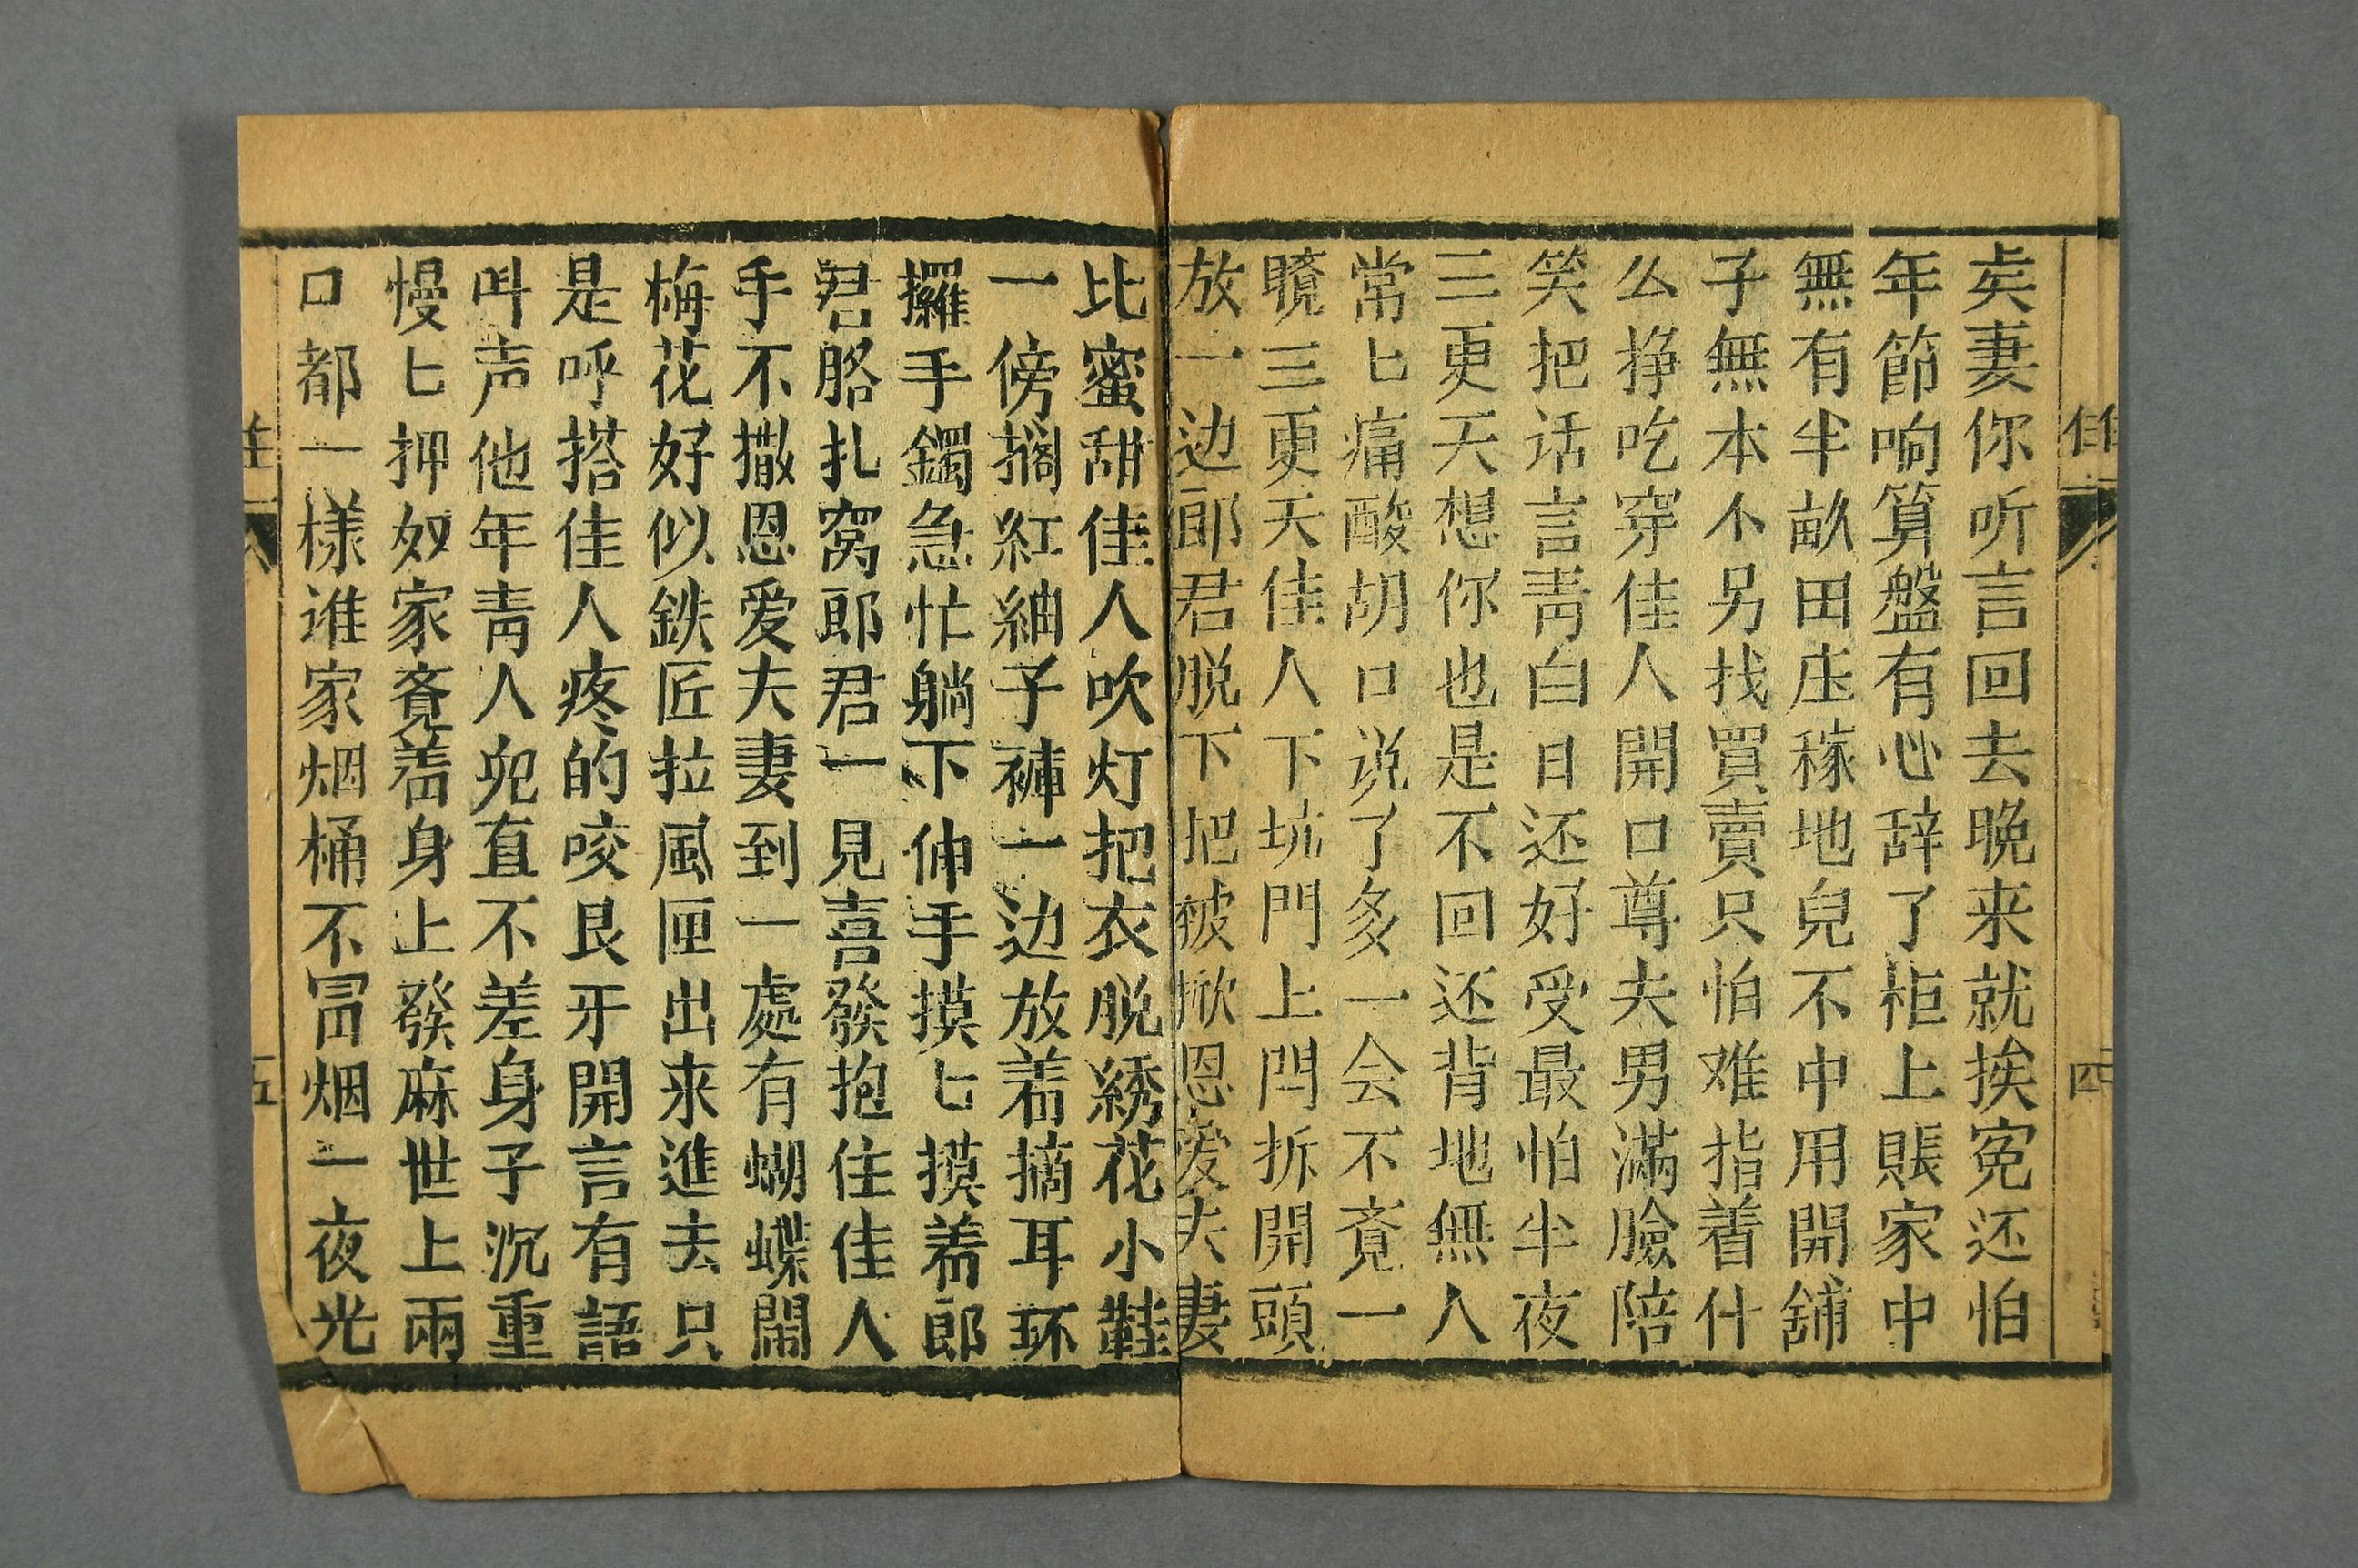 矣妻你听言回去晚来就挨寃还怕
年節响算盤有心辞了柜上賬家中
無有半畝田庄稼地兒不中用開舖
子無本不另找買賣只怕难指着什
么挣吃穿佳人開口尊夫男滿臉陪
笑把话言青白日还好受最怕半夜
三更天想你也是不回还背地無人
常匕痛酸胡口说了多一会不覔一
曉三更天佳人下坑門上閂拆開頭
放一边郎君脱下把被掀恩爱夫妻
比蜜甜佳人吹灯把衣脱綉花小鞋
一傍擱紅紬子褲一边放着摘耳环
攞手鐲急忙躺下伸手摸匕摸着郎
君胳扎窝郎君一見喜發抱住佳人
手不撒恩爱夫妻到一處有蝴蝶鬧
梅花好似鉄匠拉風匣出来進去只
是呼搭佳人疼的咬艮牙開言有語
呌声他年青人兜直不差身子沉重
慢匕押奴家覔着身上發麻世上兩
口都一樣谁家烟桶不冒烟一夜光
四
五